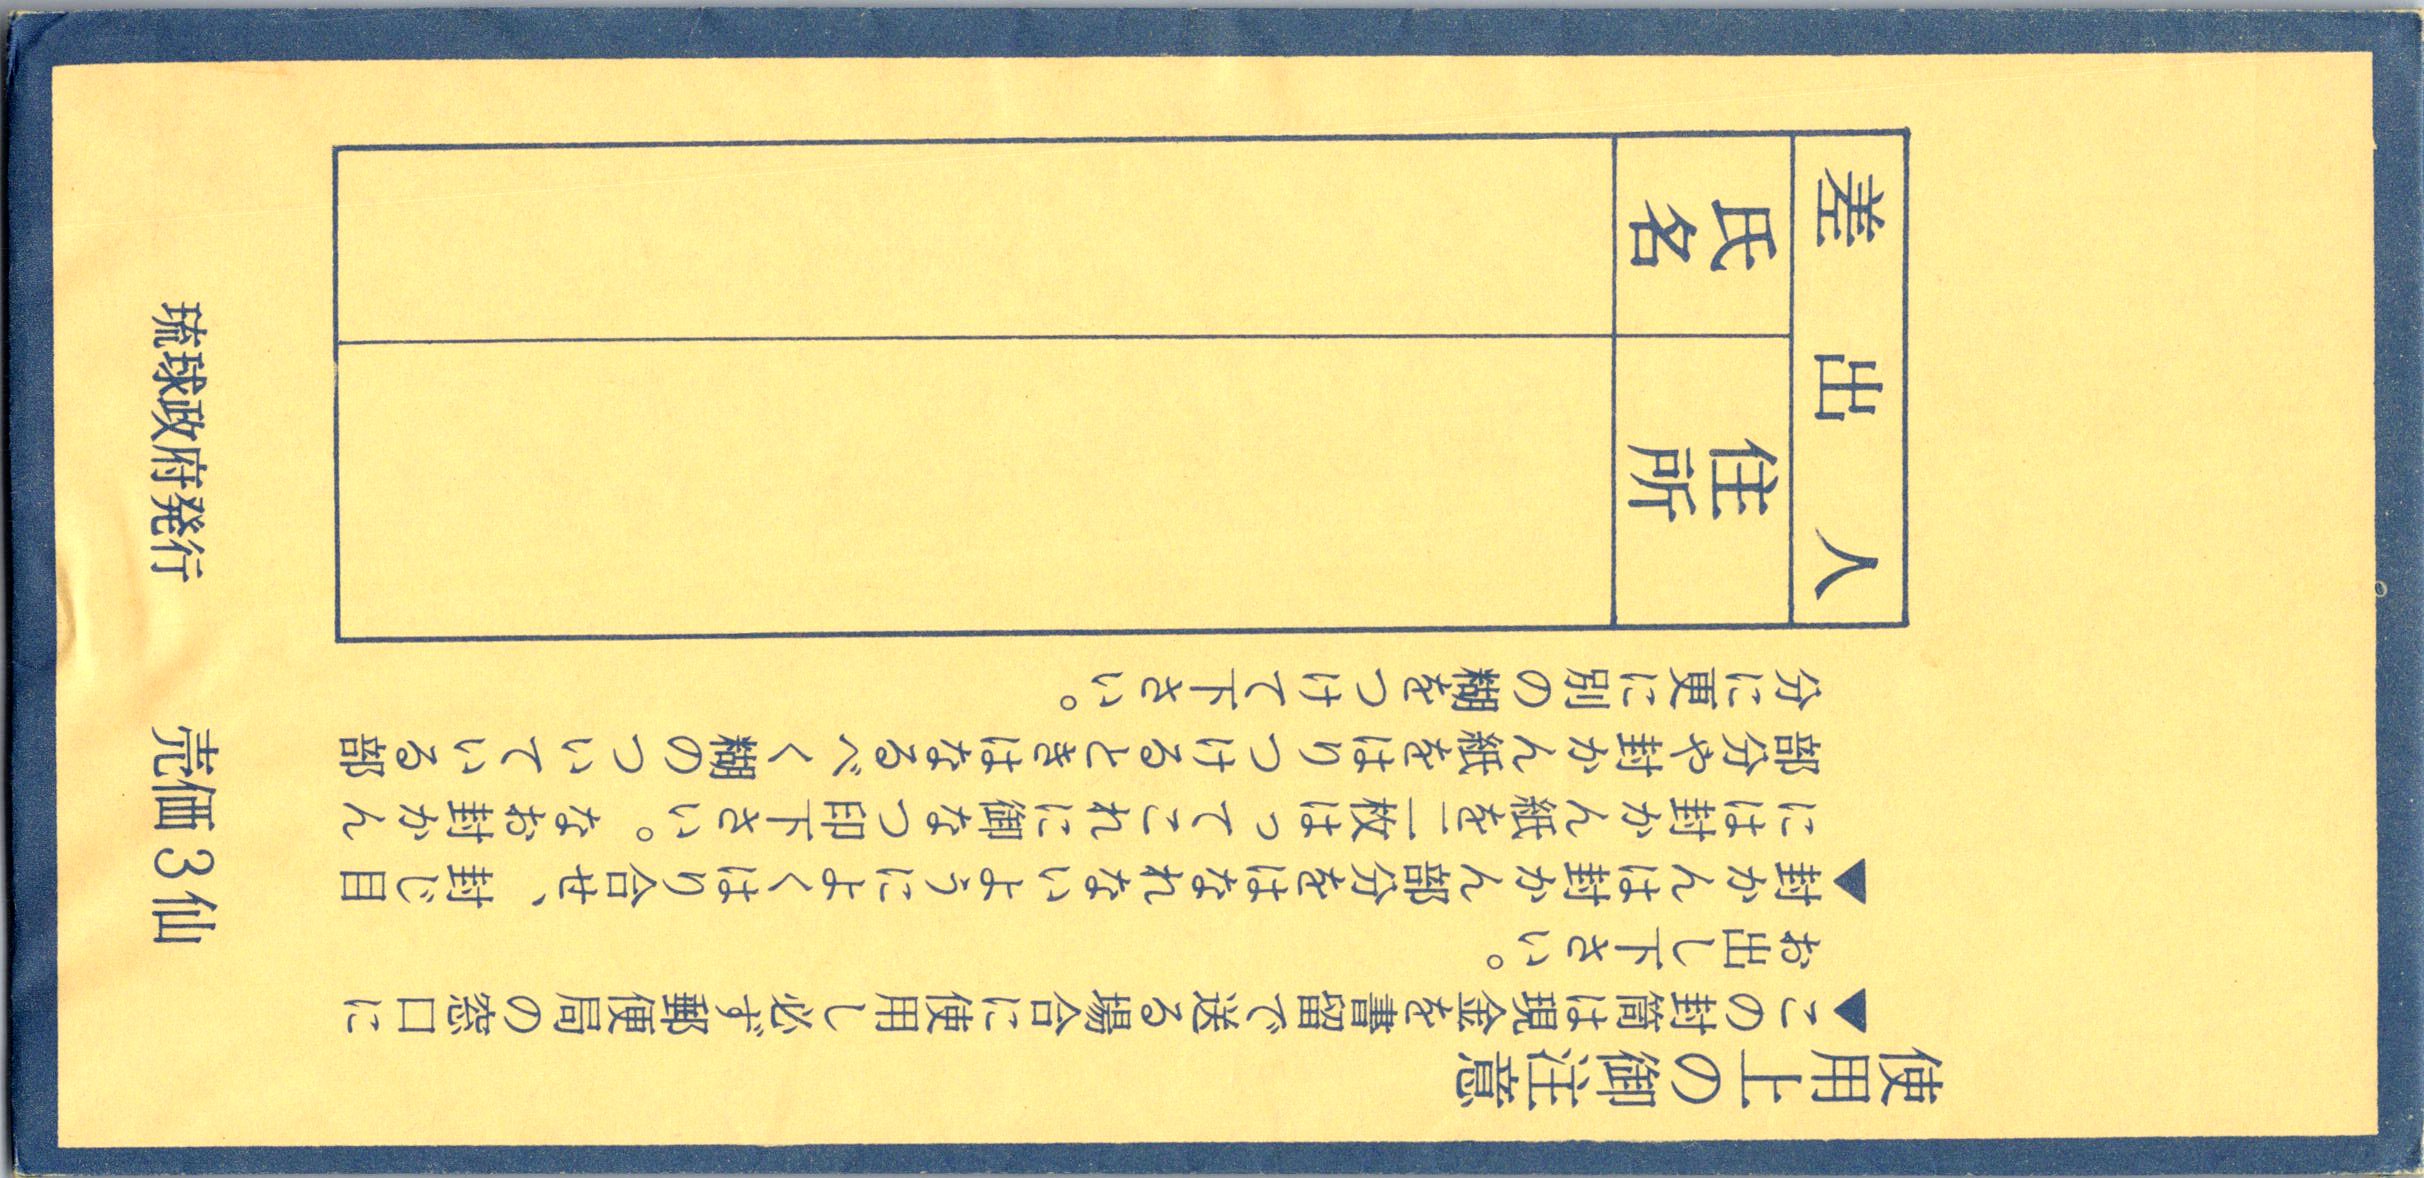 使用上の御注意
▼この封筒は現金を書留で送る場合に使用し必ず郵便局の窓口に
お出し下さい。
▼封かんは封かん部分をはなれないようによくはり合せ、封じ目
には封かん紙を一枚はってこれに御なつ印下さい。なお封かん
部分や封かん紙をはりつけるときはなるべく糊のついている部
分に更に別の糊をつけて下さい。
差出人
住所
氏名
売価3仙
琉球政府発行